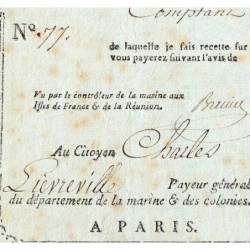 Comptant
N.° 77.
de laquelle je fais recette sur
vous payerez suivant l'avis de
Vu par le contrôleur de la marine aux
Isles de France & de la Réunion.
Au Citoyen Charles
Lierreville Payeur général
du département de la marine & des colonies.
A PARIS.